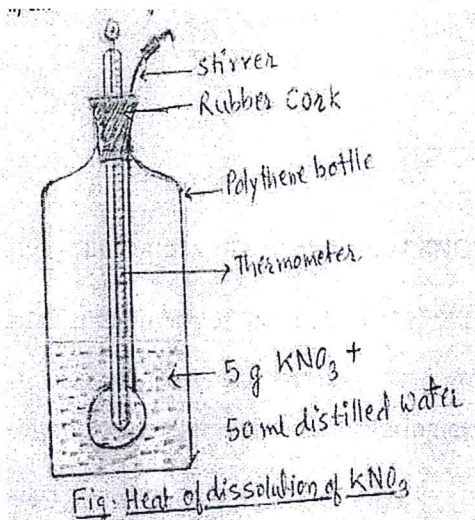 stirrer
Rubber Cork
Polythene bottle
Thermometer
5 g KNO₃ +
50 ml distilled water
Fig: Heat of dissolution of KNO₃